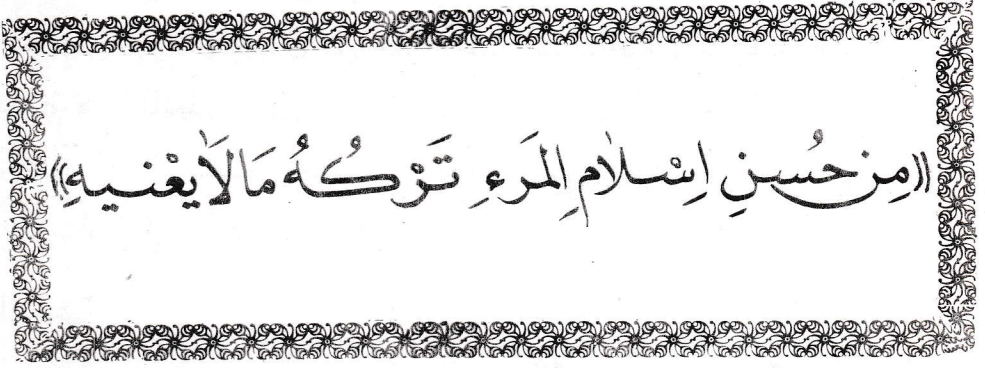 ((مِن حُسنِ اِسْلامِ المَرءِ تَرْكُهُ مَالَا يعْنيهِ))